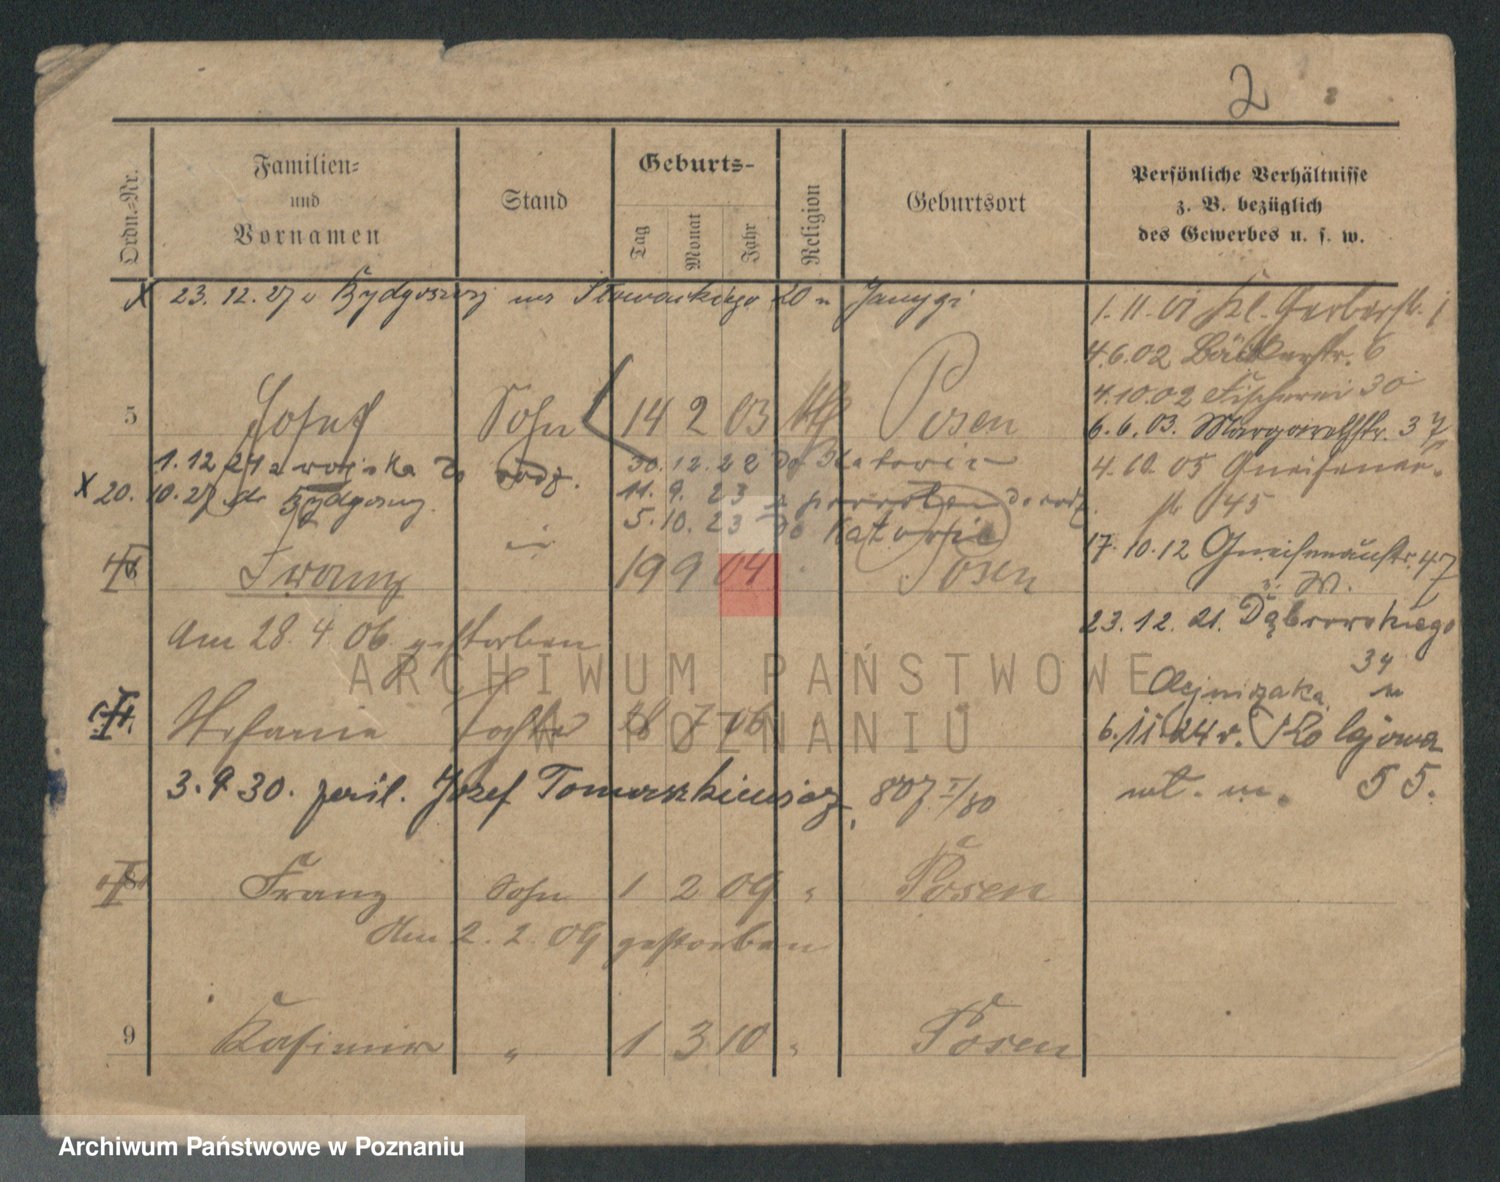 2
Ordn.-Nr.
Familien-
und
Vornamen
Stand
Geburts-
Tag
Monat
Jahr
Religion
Geburtsort
Persönliche Verhältnisse
z. B. bezüglich
des Gewerbes u. s. w.
X 23. 12. 27 Bydgoszcz Słowackiego 20
1. 11. 01 Kl. Gerberstr.
4.6.02 Bäckerstr. 6
4.10.02 Fischerei 30
5 Josef Sohn 14 2 03 Posen
6.6.03. Margarethstr. 37
1.12 24 z wojska do rodz.
30.12.22 do Katowic
4.10.05 Gneisenau-
str 45
X 20. 10. 27 do Bydgoszcz
11. 9. 23 z powrotem do rodz.
5.10.23 do Katowic
17.10.12 Gneisenaustr. 47
6 Franz 19 9 04 Posen
23.12.21. Dąbrowskiego
34
Am 28.4.06 gestorben
ARCHIWUM PAŃSTWOWE
W POZNANIU
Stefanie Tochter 7 06
6.11.24 r. Kolejowa
55.
3.9.30. Józef Tomaszkiewicz,
8 Franz Sohn 1 2 09 " Posen
Am 2.2.09 gestorben
9 Kasimir " 1 3 10 " Posen
Archiwum Państwowe w Poznaniu